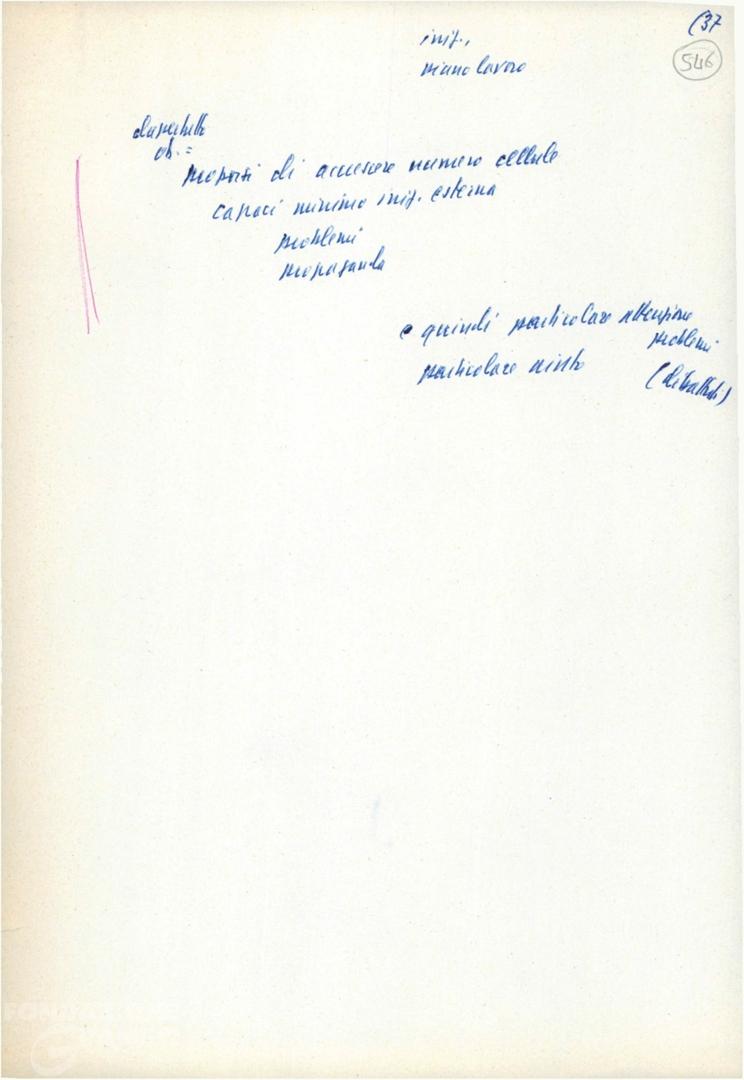 (37
546
iniz.,
piano lavoro
dappertutto
ob. =
proporsi di accrescere numero cellule
capaci minimo iniz. esterna
problemi
propaganda
e quindi particolare attenzione
problemi
particolare aiuto (dibattiti)